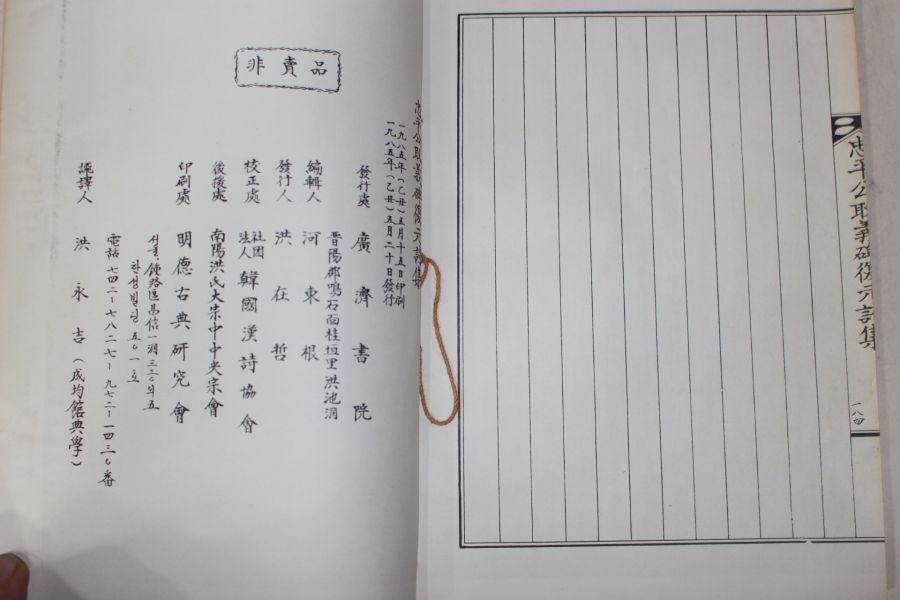 忠平公取義碑復元詩集
一八四
非賣品
忠平公取義碑復元詩集
一九八五年(乙丑)五月十五日印刷
一九八五年(乙丑)五月二十日發行
發行處 廣濟書院
晋陽郡鳴石面桂垣里洪池洞
編輯人 河東根
發行人 洪在哲
校正處 社団法人 韓國漢詩協會
後援處 南陽洪氏大宗中中央宗會
印刷處 明德古典研究會
서울 鍾路區昌信一洞三二〇의五
한성빌딩 五〇一호
電話 七四二-七八二七-九七二-一四三〇番
諺譯人 洪永吉(成均館典學)